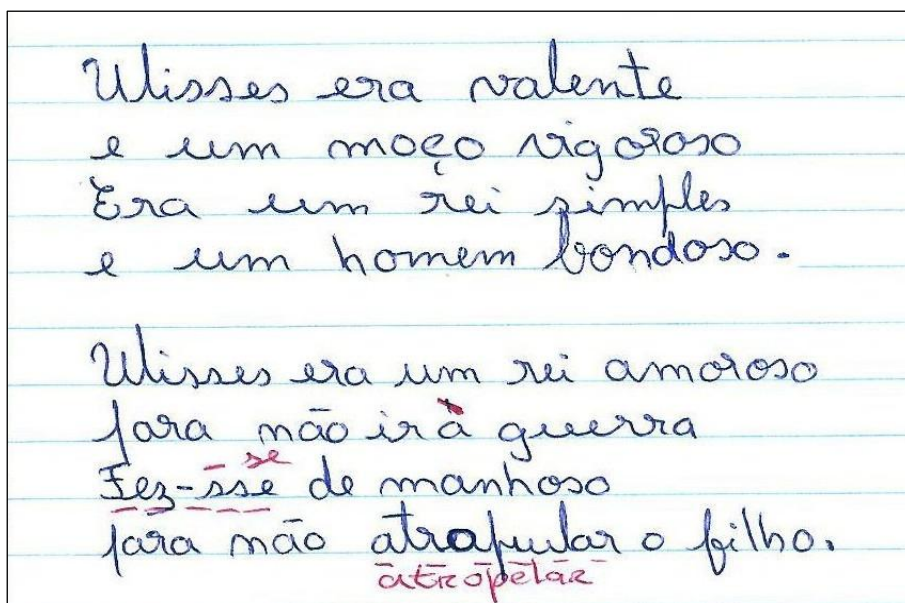 Ulisses era valente
e um moço vigoroso
Era um rei simples
e um homem bondoso.
Ulisses era um rei amoroso
para não ir à guerra
- se
Fez-sse de manhoso
para não atrapular o filho.
atropelar